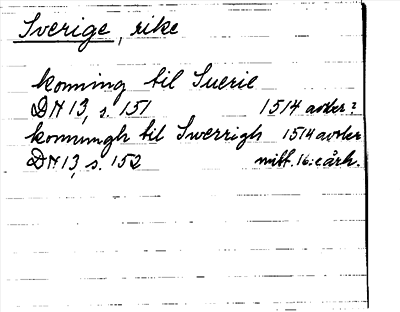 Sverige, rike
konning til Suerie
DN 13, s. 151 1514 avskr?
konnungh til Swerrigh 1514 avskr
DN 13, s. 152 mitt. 16:e årh.